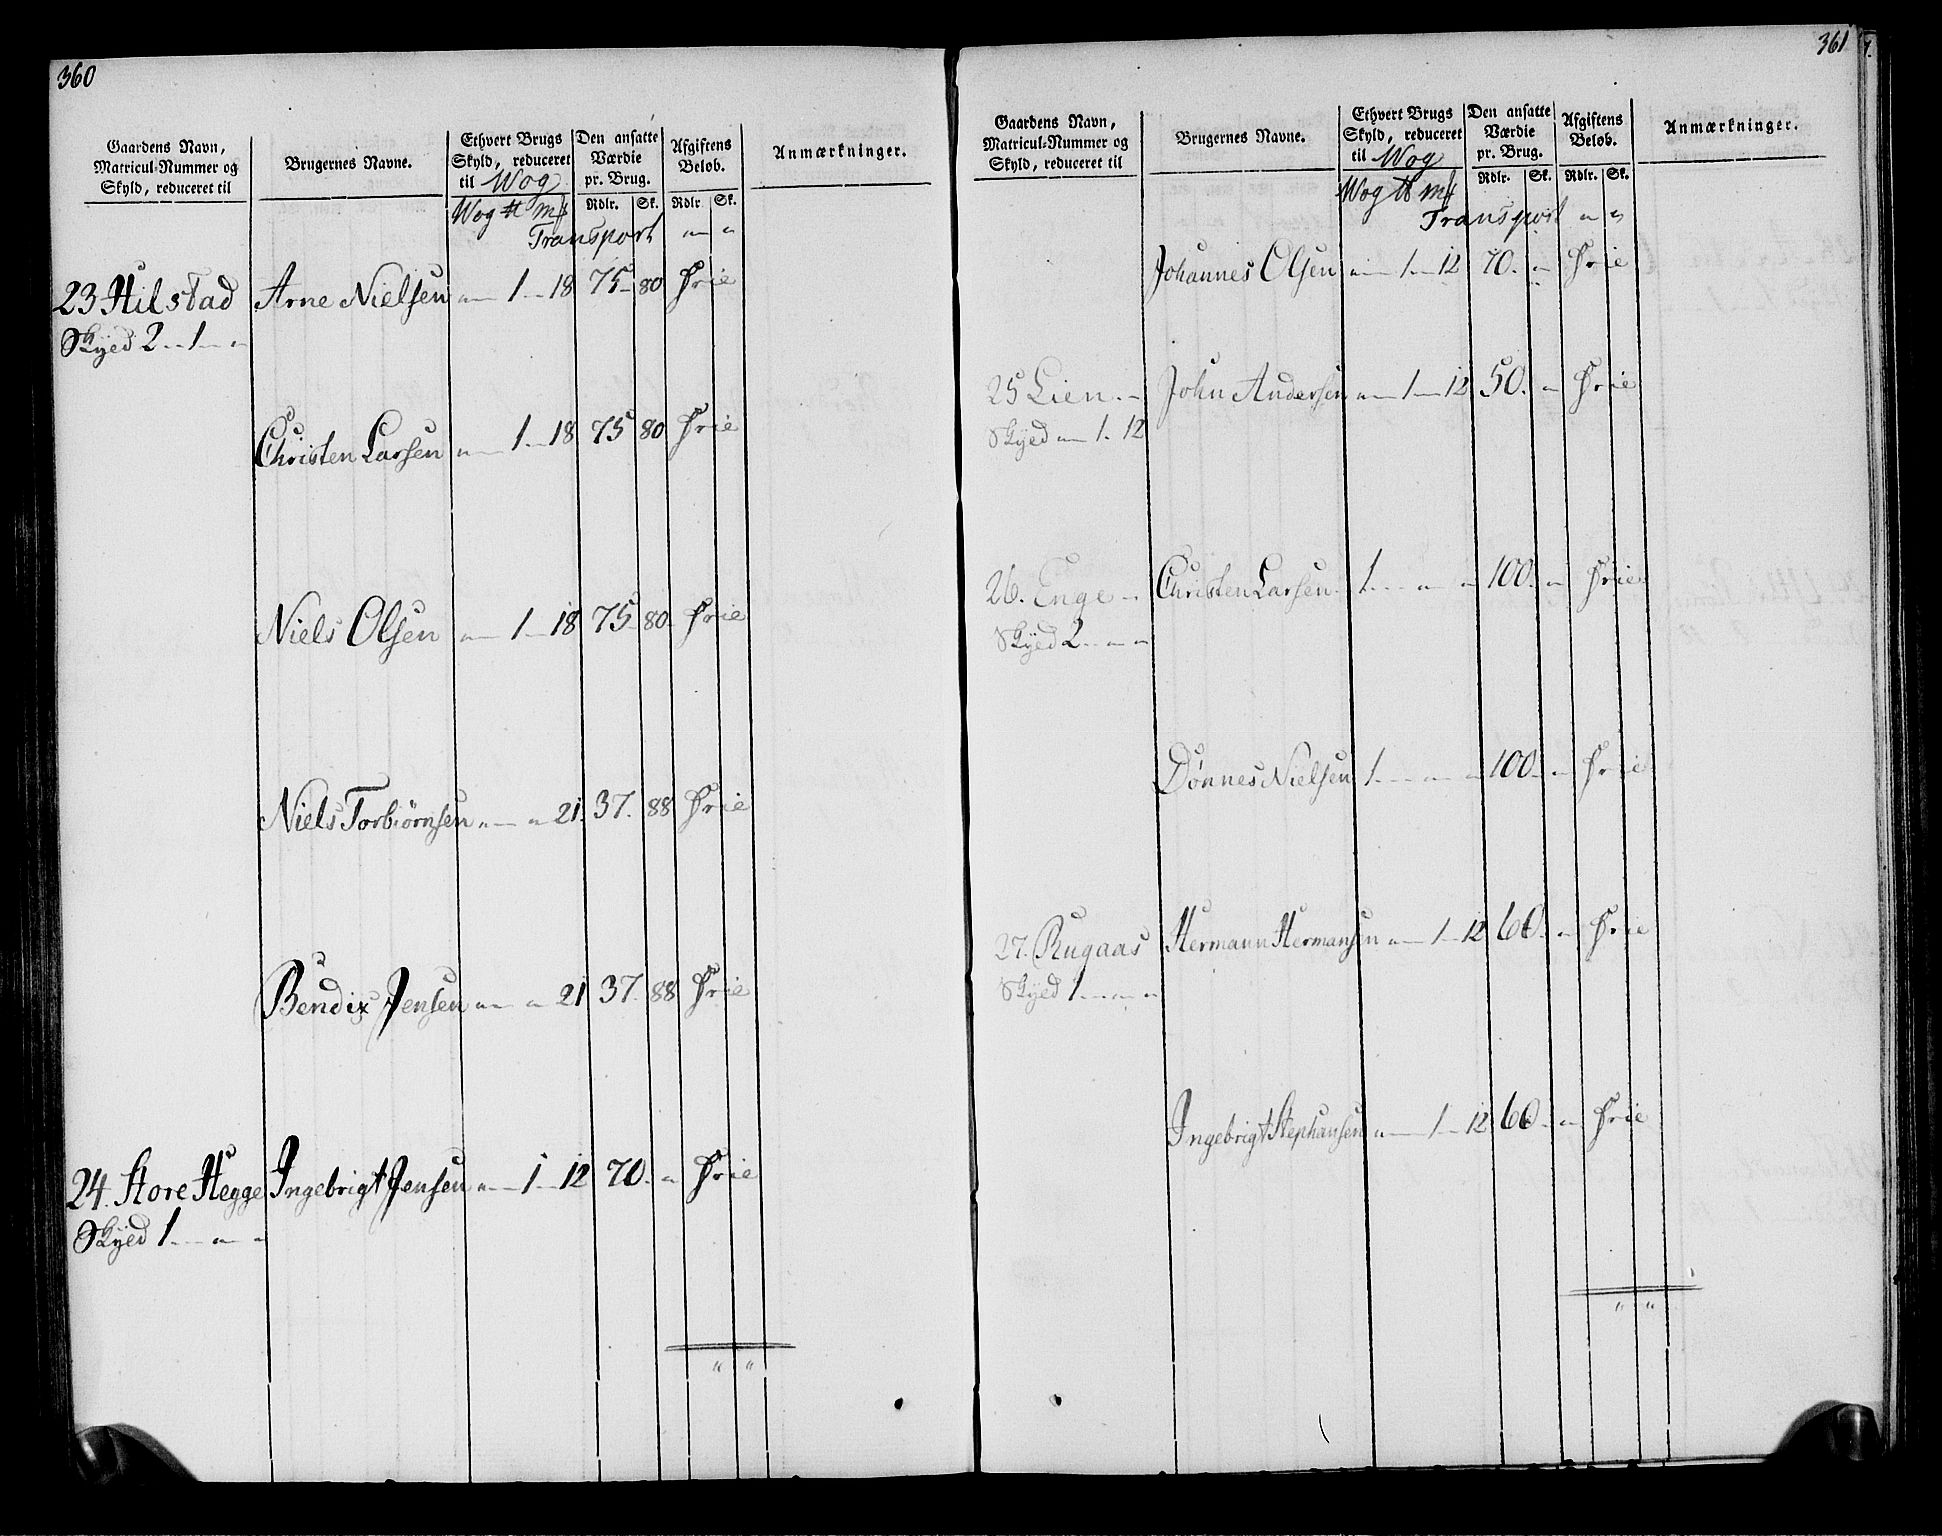 360
Gaardens Navn,
Matricul-Nummer og
Skyld, reduceret til
Brugernes Navne.
Ethvert Brugs
Skyld, reduceret
til Wog
Den ansatte
Værdie
pr. Brug.
Afgiftens
Beløb.
Anmærkninger.
Wog ℔ mk Rdlr. Sk. Rdlr. Sk.
Transport " "
23 Hilstad Arne Nielsen " 1 18 75 80 Frie
Skyld 2 1 "
Christen Larsen " 1 18 75 80 Frie
Niels Olsen " 1 18 75 80 Frie
Niels Torbiørnsen " " 21 37 88 Frie
Bendix Jensen " " 21 37 88 Frie
24. Store Hegge Ingebrigt Jensen " 1 12 70 " Frie
Skyld 1 " "
" "
361
Gaardens Navn,
Matricul-Nummer og
Skyld, reduceret til
Brugernes Navne.
Ethvert Brugs
Skyld, reduceret
til Wog
Den ansatte
Værdie
pr. Brug.
Afgiftens
Beløb.
Anmærkninger.
Wog ℔ mk Rdlr. Sk. Rdlr. Sk.
Transport " "
Johannes Olsen " 1 12 70 " Frie
25 Lien John Andersen " 1 12 50 " Frie
Skyld " 1 12
26. Enge Christen Larsen 1 " " 100 " Frie
Skyld 2 " "
Dønnes Nielsen 1 " " 100 " Frie
27. Rugaas Hermann Hermansen " 1 12 60 " Frie
Skyld 1 " "
Ingebrigt Stephansen " 1 12 60 " Frie
" "